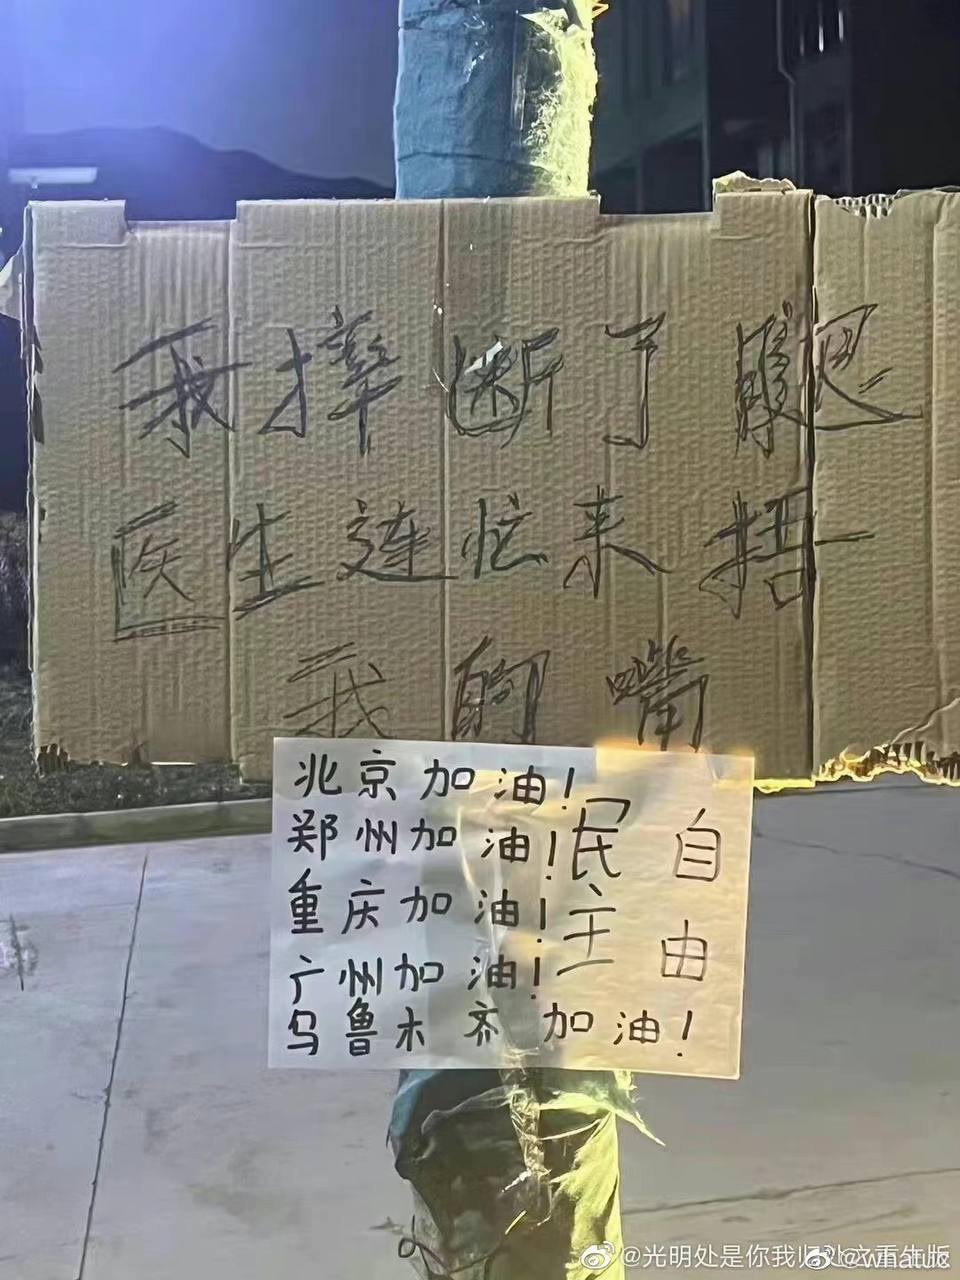 我摔断了腿
医生连忙来捂
我的嘴
北京加油!
郑州加油!
重庆加油!
广州加油!
乌鲁木齐加油!
民主
自由
@光明处是你我归处之重生版
@whatuc